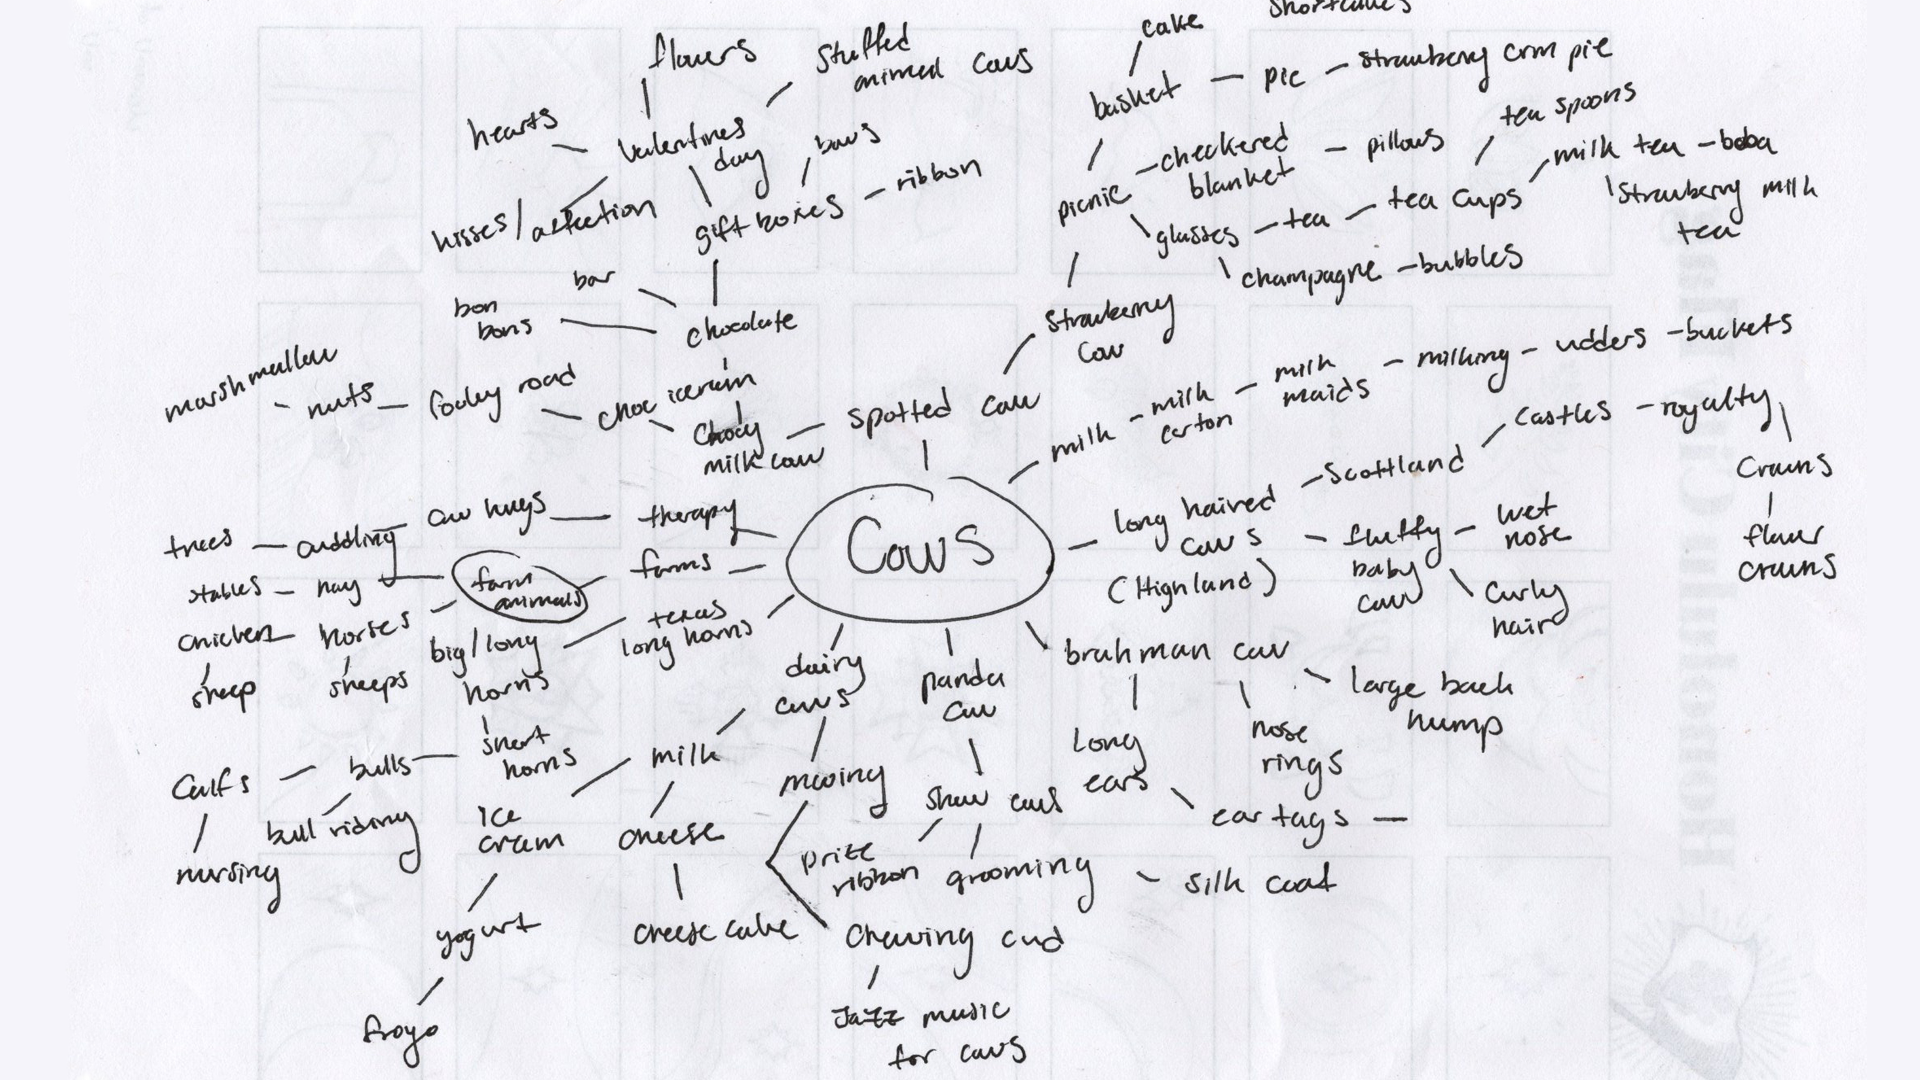 cake
shortcakes
flowers
stuffed
animal cows
basket – pie – strawberry crm pie
tea spoons
hearts
valentines
day
bows
ribbon
checkered
blanket
pillows
milk tea – boba
strawberry milk
tea
picnic
kisses/affection
gift boxes
glasses – tea – tea cups
champagne – bubbles
bar
bon
bons
chocolate
strawberry
cow
marshmallow
nuts
rocky road
choc icecream
chocy
milk cow
spotted cow
milk – milk
carton
milk
maids
milking – udders – buckets
long haired
cows
(Highland)
Scottland
castles – royalty
crowns
flower
crowns
fluffy
baby
cow
wet
nose
curly
hair
trees – cuddling
cow hugs
therapy
Cows
stables – hay
farm
animals
farms
chicken
horses
sheep
sheeps
big/long
horns
texas
long horns
short
horns
Calfs
bulls
bull riding
nursing
dairy
cows
milk
ice
cream
cheese
yogurt
froyo
cheese cake
mooing
chewing cud
Jazz music
for cows
panda
cow
show cows
prize
ribbon
grooming
silk coat
brahman cow
long
ears
nose
rings
large back
hump
ear tags –